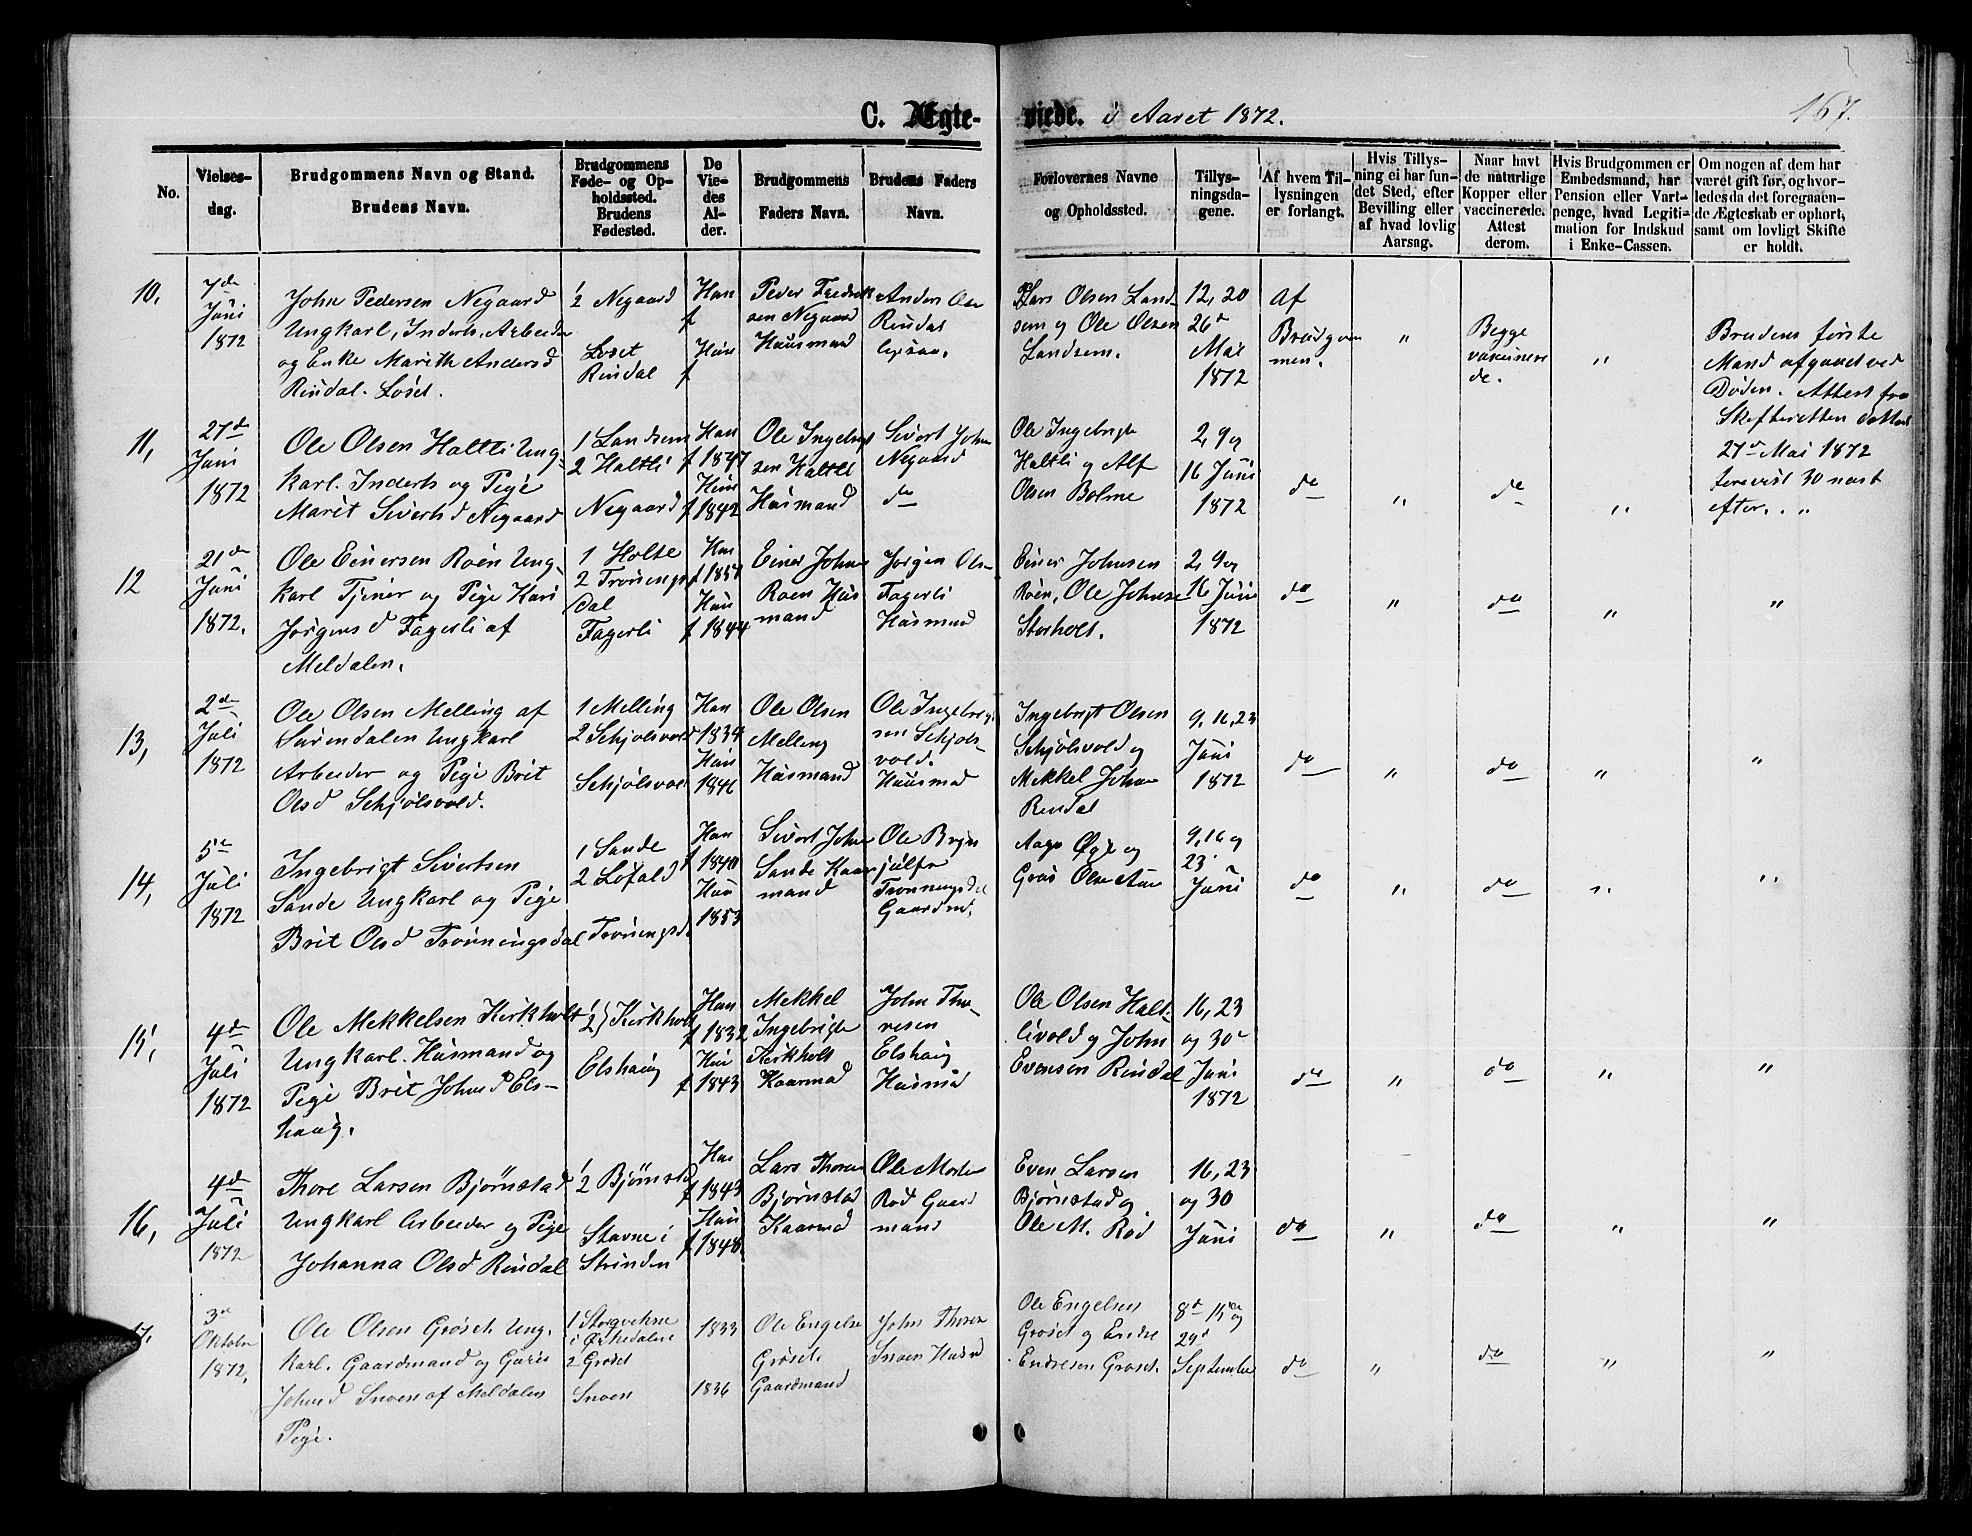 C. Ægte-
viede. i Aaret 1872.
167.
No.
Vielses-
dag.
Brudgommens Navn og Stand.
Brudens Navn.
Brudgommens
Føde- og Op-
holdssted.
Brudens
Fødested.
De
Vie-
des
Al-
der.
Brudgommens
Faders Navn.
Brudens Faders
Navn.
Forlovernes Navne
og Opholdssted.
Tillys-
ningsda-
gene.
Af hvem Til-
lysningen
er forlangt.
Hvis Tillys-
ning ei har fun-
det Sted, efter
Bevilling eller
af hvad lovlig
Aarsag.
Naar havt
de naturlige
Kopper eller
vaccinerede.
Attest
derom.
Hvis Brudgommen er
Embedsmand, har
Pension eller Vart-
penge, hvad Legiti-
mation for Indskud
i Enke-Cassen.
Om nogen af dem har
været gift før, og hvor-
ledes da det foregaaen-
de Ægteskab er ophørt,
samt om lovligt Skifte
er holdt.
10,
7de
Juni
1872
John Pedersen Negaard
Ungkarl, Inderts, Arbeider
og Enke Marith Andersd
Rindal. Løset.
1/2 Negaard
Løset
Rindal
Han
f
Hun
f
Peder Fredrik
sen Negaard
Huusmand
Anders Ole
Rindal
Lars Olsen Land
sem og Ole Olsen
Landsem.
12, 20
26de
Mai
1872
Af
Brudgom
men.
"
Begge
vaccinere
de.
"
Brudens første
Mand afgaaet ved
Døden. Attest fra
Skifteretten dateret
27de Mai 1872
forevist 30 næst
efter. "
11,
27de
Juni
1872
Ole Olsen Haltli Ung-
karl. Inderts og Pige
Marit Sivertsd Negaard
1 Landsem
2 Haltli
Negaard
Han
f 1847
Hun
f 1842
Ole Ingebrigt
sen Haltli
Husmand
Sivert John
Negaard
do
Ole Ingebrigts
Haltli og Alf
Olsen Bolme
2, 9 og
16 Juni
1872
do
"
do
"
12
21de
Juni
1872,
Ole Einersen Roen Ung-
karl Tjener og Pige Kari
Jørgens d Fagerli af
Meldalen.
1 Holte
2 Trønings
dal
Fagerli
Han
f 1851
Hun
f 1844
Einer Johns
Roen Hus
mand
Jørgen Ols
Fagerli
Husmand
Einer Johnsen
Roen, Ole Johnse
Storholt.
2, 9 og
16 Juni
1872
do
"
do
"
"
13,
2de
Juli
1872
Ole Olsen Melling af
Surendalen Ungkarl
Arbeider og Pige Brit
Olsd Schjølsvold.
1 Melling
2 Schjølsvold
Schjølsvold
Han
1839
Hun
1846
Ole Olsen
Melling
Husmand
Ole Ingebrigt
sen Schjøls-
vold.
Huusmad
Ingebrigt Olsen
Schjølsvold og
Mekkel Johns
Rindal
9, 16, 23
Juni
1872
do
"
do
"
"
14,
5te
Juli
1872
Ingebrigt Sivertsen
Sande Ungkarl og Pige
Brit Olsd Trønningsdal
1 Sande
2 Løfald
Trønningsd
Han
f 1840
Hun
1853
Sivert Johns
Sande Kaar
mand
Ole Bryn
julfs
Trønningsdal
Gaardmd.
Aage Øye og
Gros Olse Aun
9, 16 og
23
Juni
do
"
do
"
"
15,
4de
Juli
1872
Ole Mekkelsen Kirkholt
Ungkarl. Husmand og
Pige Brit Johnsd Els-
haug.
1/2} Kirkholt
Elshaug
Han
f 1832
Hun
f 1843
Mekkel
Ingebrigts
Kirkholt
Kaarmad
John Tho-
resen
Elshaug
Husmd
Ole Olsen Halt-
livold og John
Evensen Rindal
16, 23
og 30te
Juni
1872
do
"
do
"
"
16,
4de
Juli
1872
Thore Larsen Bjørnstad
Ungkarl Arbeider og Pige
Johanna Olsd Rindal
1/2 Bjørnstad
Stavne i
Strinden
Han
f 1843
Hun
f 1848
Lars Thores
Bjørnstad
Kaarmd
Ole Mortens
Rød Gaard
mand
Even Larsen
Bjørnstad og
Ole M. Rød
16, 23
og 30
Juni
do
"
do
"
"
17.
3de
Oktober
1872,
Ole Olsen Grøset. Ung-
karl. Gaardmand og
Johnsd Snoen af Meldalen
Pige.
i Ørkedalen
2 Grøset
Snoen
1833
1836
Ole Engelse
Grøset.
Gaardmand
John Thores
Snoen Husmd
Ole Engelsen
Grøset og Endre
Endresen Grøset.
8de 15de og
29de
September
do
"
do
"
"